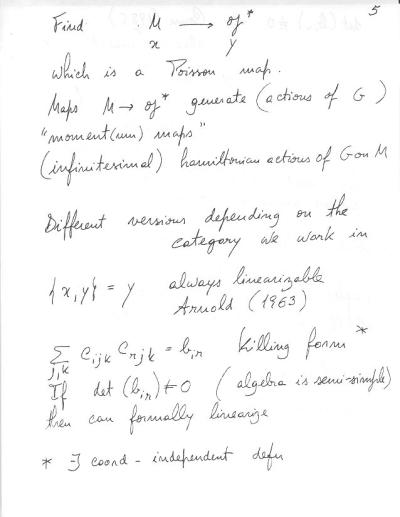 5
Find M → 𝔤*
x y
which is a Poisson map.
Maps M → 𝔤* generate (actions of G)
"moment(um) maps"
(infinitesimal) hamiltonian actions of G on M
Different versions depending on the
category we work in
{x,y} = y always linearizable
Arnold (1963)
∑ c_ijk c_rjk = b_ir Killing form *
j,k
If det (b_ir) ≠ 0 (algebra is semi-simple)
then can formally linearize
* ∃ coord-independent defn